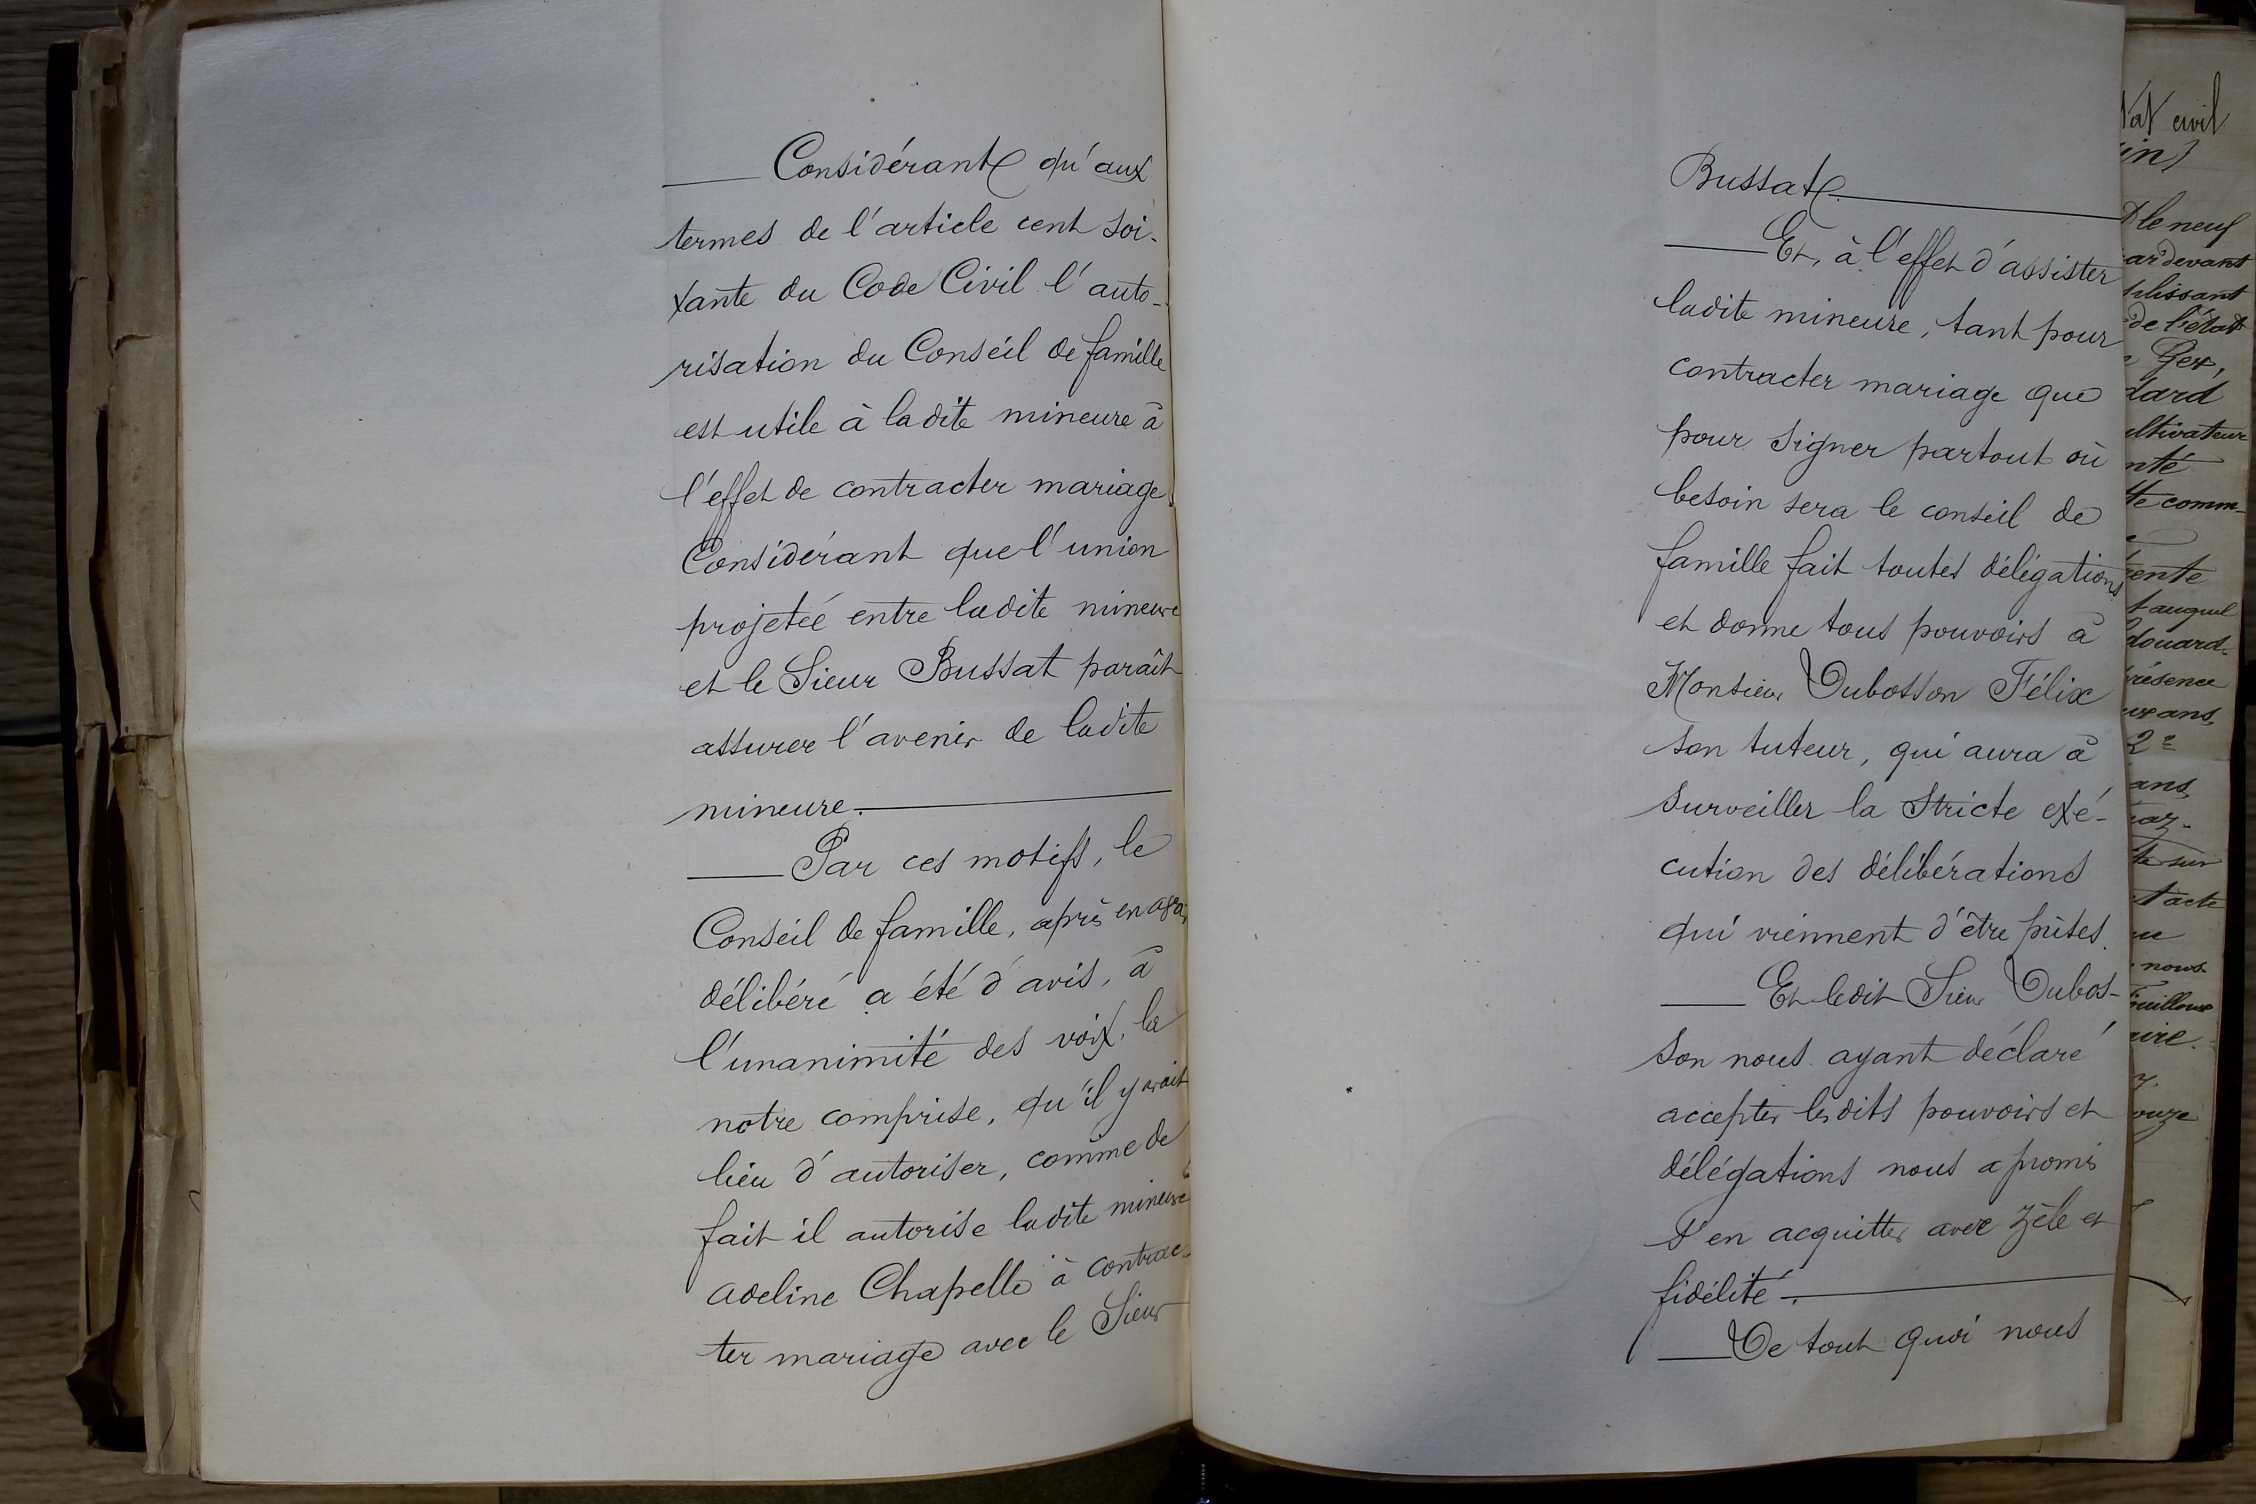 Considérant qu'aux
termes de l'article cent soi-
xante du Code Civil l'auto-
risation du Conseil de famille
est utile à ladite mineure à
l'effet de contracter mariage.
Considérant que l'union
projetée entre ladite mineure
et le Sieur Bussat paraît
assurer l'avenir de ladite
mineure.
Par ces motifs, le
Conseil de famille, après en avoir
délibéré a été d'avis, à
l'unanimité des voix, la
notre comprise, qu'il y avait
lieu d'autoriser, comme de
fait il autorise ladite mineure
Adeline Chapelle à contrac-
ter mariage avec le Sieur
Bussat.
Et, à l'effet d'assister
ladite mineure, tant pour
contracter mariage que
pour signer partout où
besoin sera le conseil de
famille fait toutes délégations
et donne tous pouvoirs à
Monsieur Dubosson Félix
son tuteur, qui aura à
surveiller la stricte exé-
cution des délibérations
qui viennent d'être prises.
Et ledit Sieur Dubos-
son nous ayant déclaré
accepter lesdits pouvoirs et
délégations nous a promis
s'en acquitter avec zèle et
fidélité.
De tout quoi nous
civil
le neuf
devant
de l'état
Gex,
comm-
auquel
ans,
2e
ans,
acte
nous